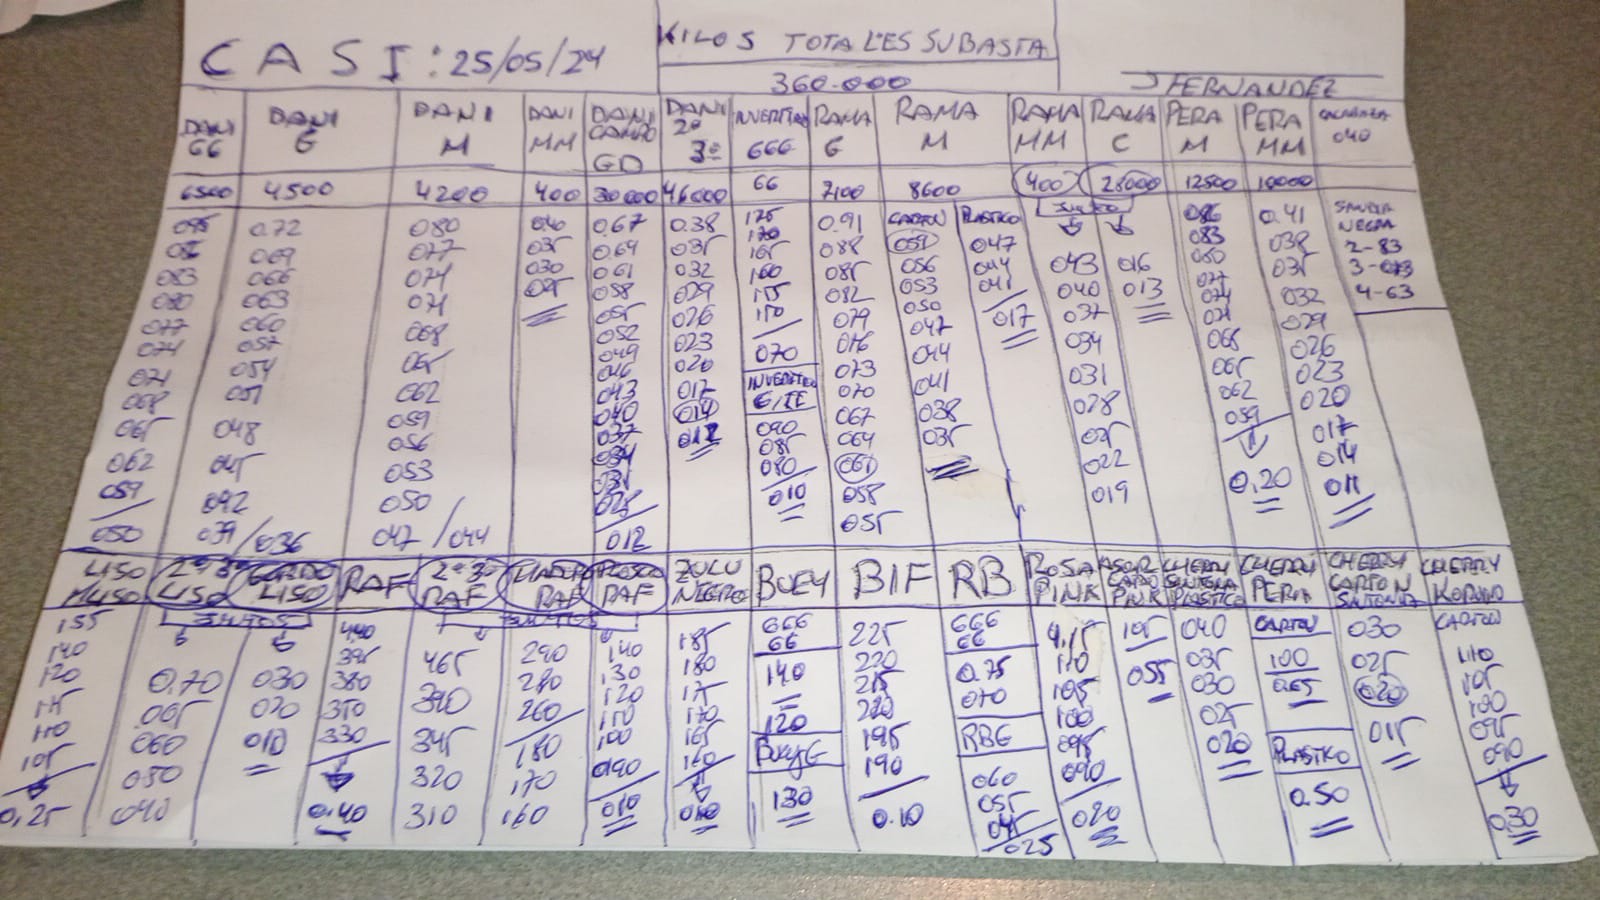 CASI: 25/05/24
KILOS TOTALES SUBASTA
360.000
J FERNANDEZ
DANI GG | DANI G | DANI M | DANI MM | DANI CAMPO GD | DANI 2ª 3ª | INVERTIDO 666 | RAMA G | RAMA M | RAMA MM | RAMA C | PERA M | PERA MM | 040
6500 | 4500 | 4200 | 400 | 30000 | 46000 | 66 | 7100 | 8600 | 400 | 28000 | 12500 | 10000
DANI GG
095
086
083
080
077
074
071
068
065
062
059
050
DANI G
0.72
069
066
063
060
057
054
051
048
045
042
039/036
DANI M
080
077
074
071
068
065
062
059
056
053
050
047/044
DANI MM
040
035
030
025
DANI CAMPO GD
0.67
0.64
0.61
058
055
052
049
046
043
040
037
034
031
028
012
DANI 2ª 3ª
0.38
035
032
029
026
023
020
017
014
012
INVERTIDO 666
175
170
165
160
155
150
070
INVERTIDO
090
085
080
010
RAMA G
0.91
088
085
082
079
076
073
070
067
064
061
058
055
RAMA M
CARTON
059
056
053
050
047
044
041
038
035
PLASTICO
047
044
041
017
JUNTO
RAMA MM
043
040
037
034
031
028
025
022
019
RAMA C
016
013
PERA M
086
083
080
077
074
071
068
065
062
059
0.20
PERA MM
0.41
038
035
032
029
026
023
020
017
014
011
NEGRA
2-83
3-073
4-63
LISO | 2ª 3ª LISO | GORDO LISO | RAF | 2ª 3ª RAF | RAF | RAF | ZULU NEGRO | BUEY | BIF | RB | ROSA PINK | PINK | CHERRY SINTONIA PLASTICO | CHERRY PERA | CHERRY CARTON SINTONIA | CHERRY KOPANO
155
140
120
115
110
105
0,25
JUNTOS
0.70
065
060
050
040
030
020
010
440
395
380
350
330
0.40
JUNTOS
465
390
345
320
310
290
280
260
180
170
160
140
130
120
110
100
090
010
185
180
175
170
165
160
010
666
66
140
120
BUEY G
130
225
220
215
210
195
190
0.10
666
66
0.75
070
RBG
060
055
045
025
1,15
110
105
100
095
090
020
105
055
040
035
030
025
020
CARTON
100
0.65
PLASTICO
0.50
030
025
020
015
CARTON
110
105
100
095
090
0,30